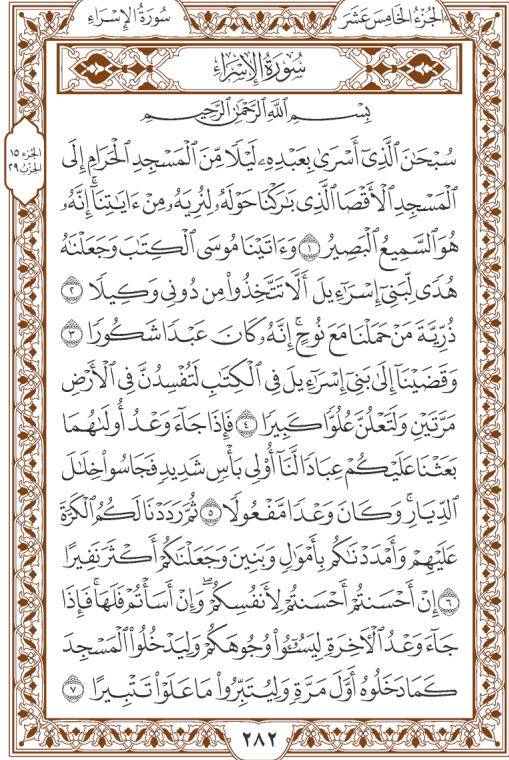 سُورَةُ الإِسْرَاءِ
الجُزْءُ الخَامِسَ عَشَرَ
سُورَةُ الإِسْرَاءِ
بِسْمِ ٱللَّهِ ٱلرَّحْمَٰنِ ٱلرَّحِيمِ
الجُزء ١٥
الحِزب ٢٩
سُبْحَٰنَ ٱلَّذِىٓ أَسْرَىٰ بِعَبْدِهِۦ لَيْلًا مِّنَ ٱلْمَسْجِدِ ٱلْحَرَامِ إِلَى
ٱلْمَسْجِدِ ٱلْأَقْصَا ٱلَّذِى بَٰرَكْنَا حَوْلَهُۥ لِنُرِيَهُۥ مِنْ ءَايَٰتِنَآ ۚ إِنَّهُۥ
هُوَ ٱلسَّمِيعُ ٱلْبَصِيرُ ١ وَءَاتَيْنَا مُوسَى ٱلْكِتَٰبَ وَجَعَلْنَٰهُ
هُدًى لِّبَنِىٓ إِسْرَٰٓءِيلَ أَلَّا تَتَّخِذُوا۟ مِن دُونِى وَكِيلًا ٢
ذُرِّيَّةَ مَنْ حَمَلْنَا مَعَ نُوحٍ ۚ إِنَّهُۥ كَانَ عَبْدًا شَكُورًا ٣
وَقَضَيْنَآ إِلَىٰ بَنِىٓ إِسْرَٰٓءِيلَ فِى ٱلْكِتَٰبِ لَتُفْسِدُنَّ فِى ٱلْأَرْضِ
مَرَّتَيْنِ وَلَتَعْلُنَّ عُلُوًّا كَبِيرًا ٤ فَإِذَا جَآءَ وَعْدُ أُولَىٰهُمَا
بَعَثْنَا عَلَيْكُمْ عِبَادًا لَّنَآ أُو۟لِى بَأْسٍ شَدِيدٍ فَجَاسُوا۟ خِلَٰلَ
ٱلدِّيَارِ ۚ وَكَانَ وَعْدًا مَّفْعُولًا ٥ ثُمَّ رَدَدْنَا لَكُمُ ٱلْكَرَّةَ
عَلَيْهِمْ وَأَمْدَدْنَٰكُم بِأَمْوَٰلٍ وَبَنِينَ وَجَعَلْنَٰكُمْ أَكْثَرَ نَفِيرًا
٦ إِنْ أَحْسَنتُمْ أَحْسَنتُمْ لِأَنفُسِكُمْ ۖ وَإِنْ أَسَأْتُمْ فَلَهَا ۚ فَإِذَا
جَآءَ وَعْدُ ٱلْءَاخِرَةِ لِيَسُۥٓـُٔوا۟ وُجُوهَكُمْ وَلِيَدْخُلُوا۟ ٱلْمَسْجِدَ
كَمَا دَخَلُوهُ أَوَّلَ مَرَّةٍ وَلِيُتَبِّرُوا۟ مَا عَلَوْا۟ تَتْبِيرًا ٧
٢٨٢